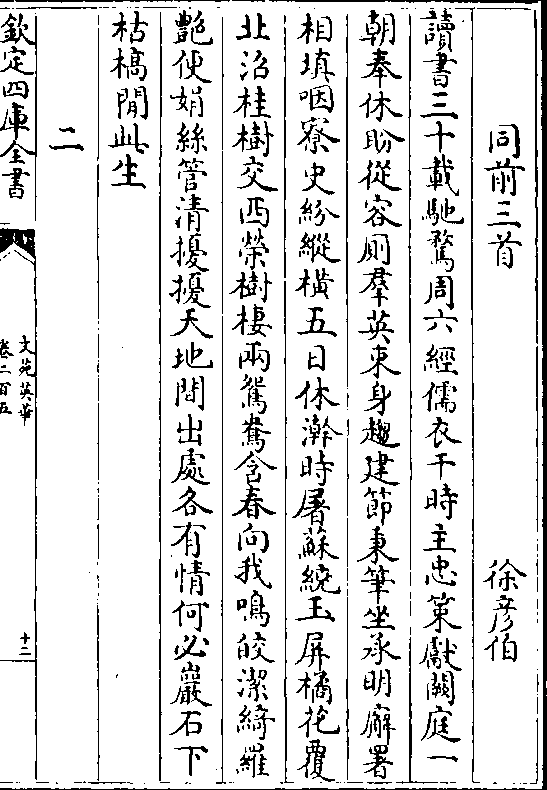 同前三首　徐彦伯
讀書三十載馳騖周六經儒衣干時主忠策獻闕庭一
朝奉休盼從容厠羣英束身趨建節秉筆坐承明廨署
相填咽寮史紛縱橫五日休澣時屠蘇繞玉屏橘花覆
北沼桂樹交西榮樹棲兩鴛鴦含春向我鳴皎潔綺羅
艷便娟絲管清擾擾天地間出處各有情何必巖石下
枯槁閒此生
二
欽定四庫全書
文苑英華
卷二百五
十二